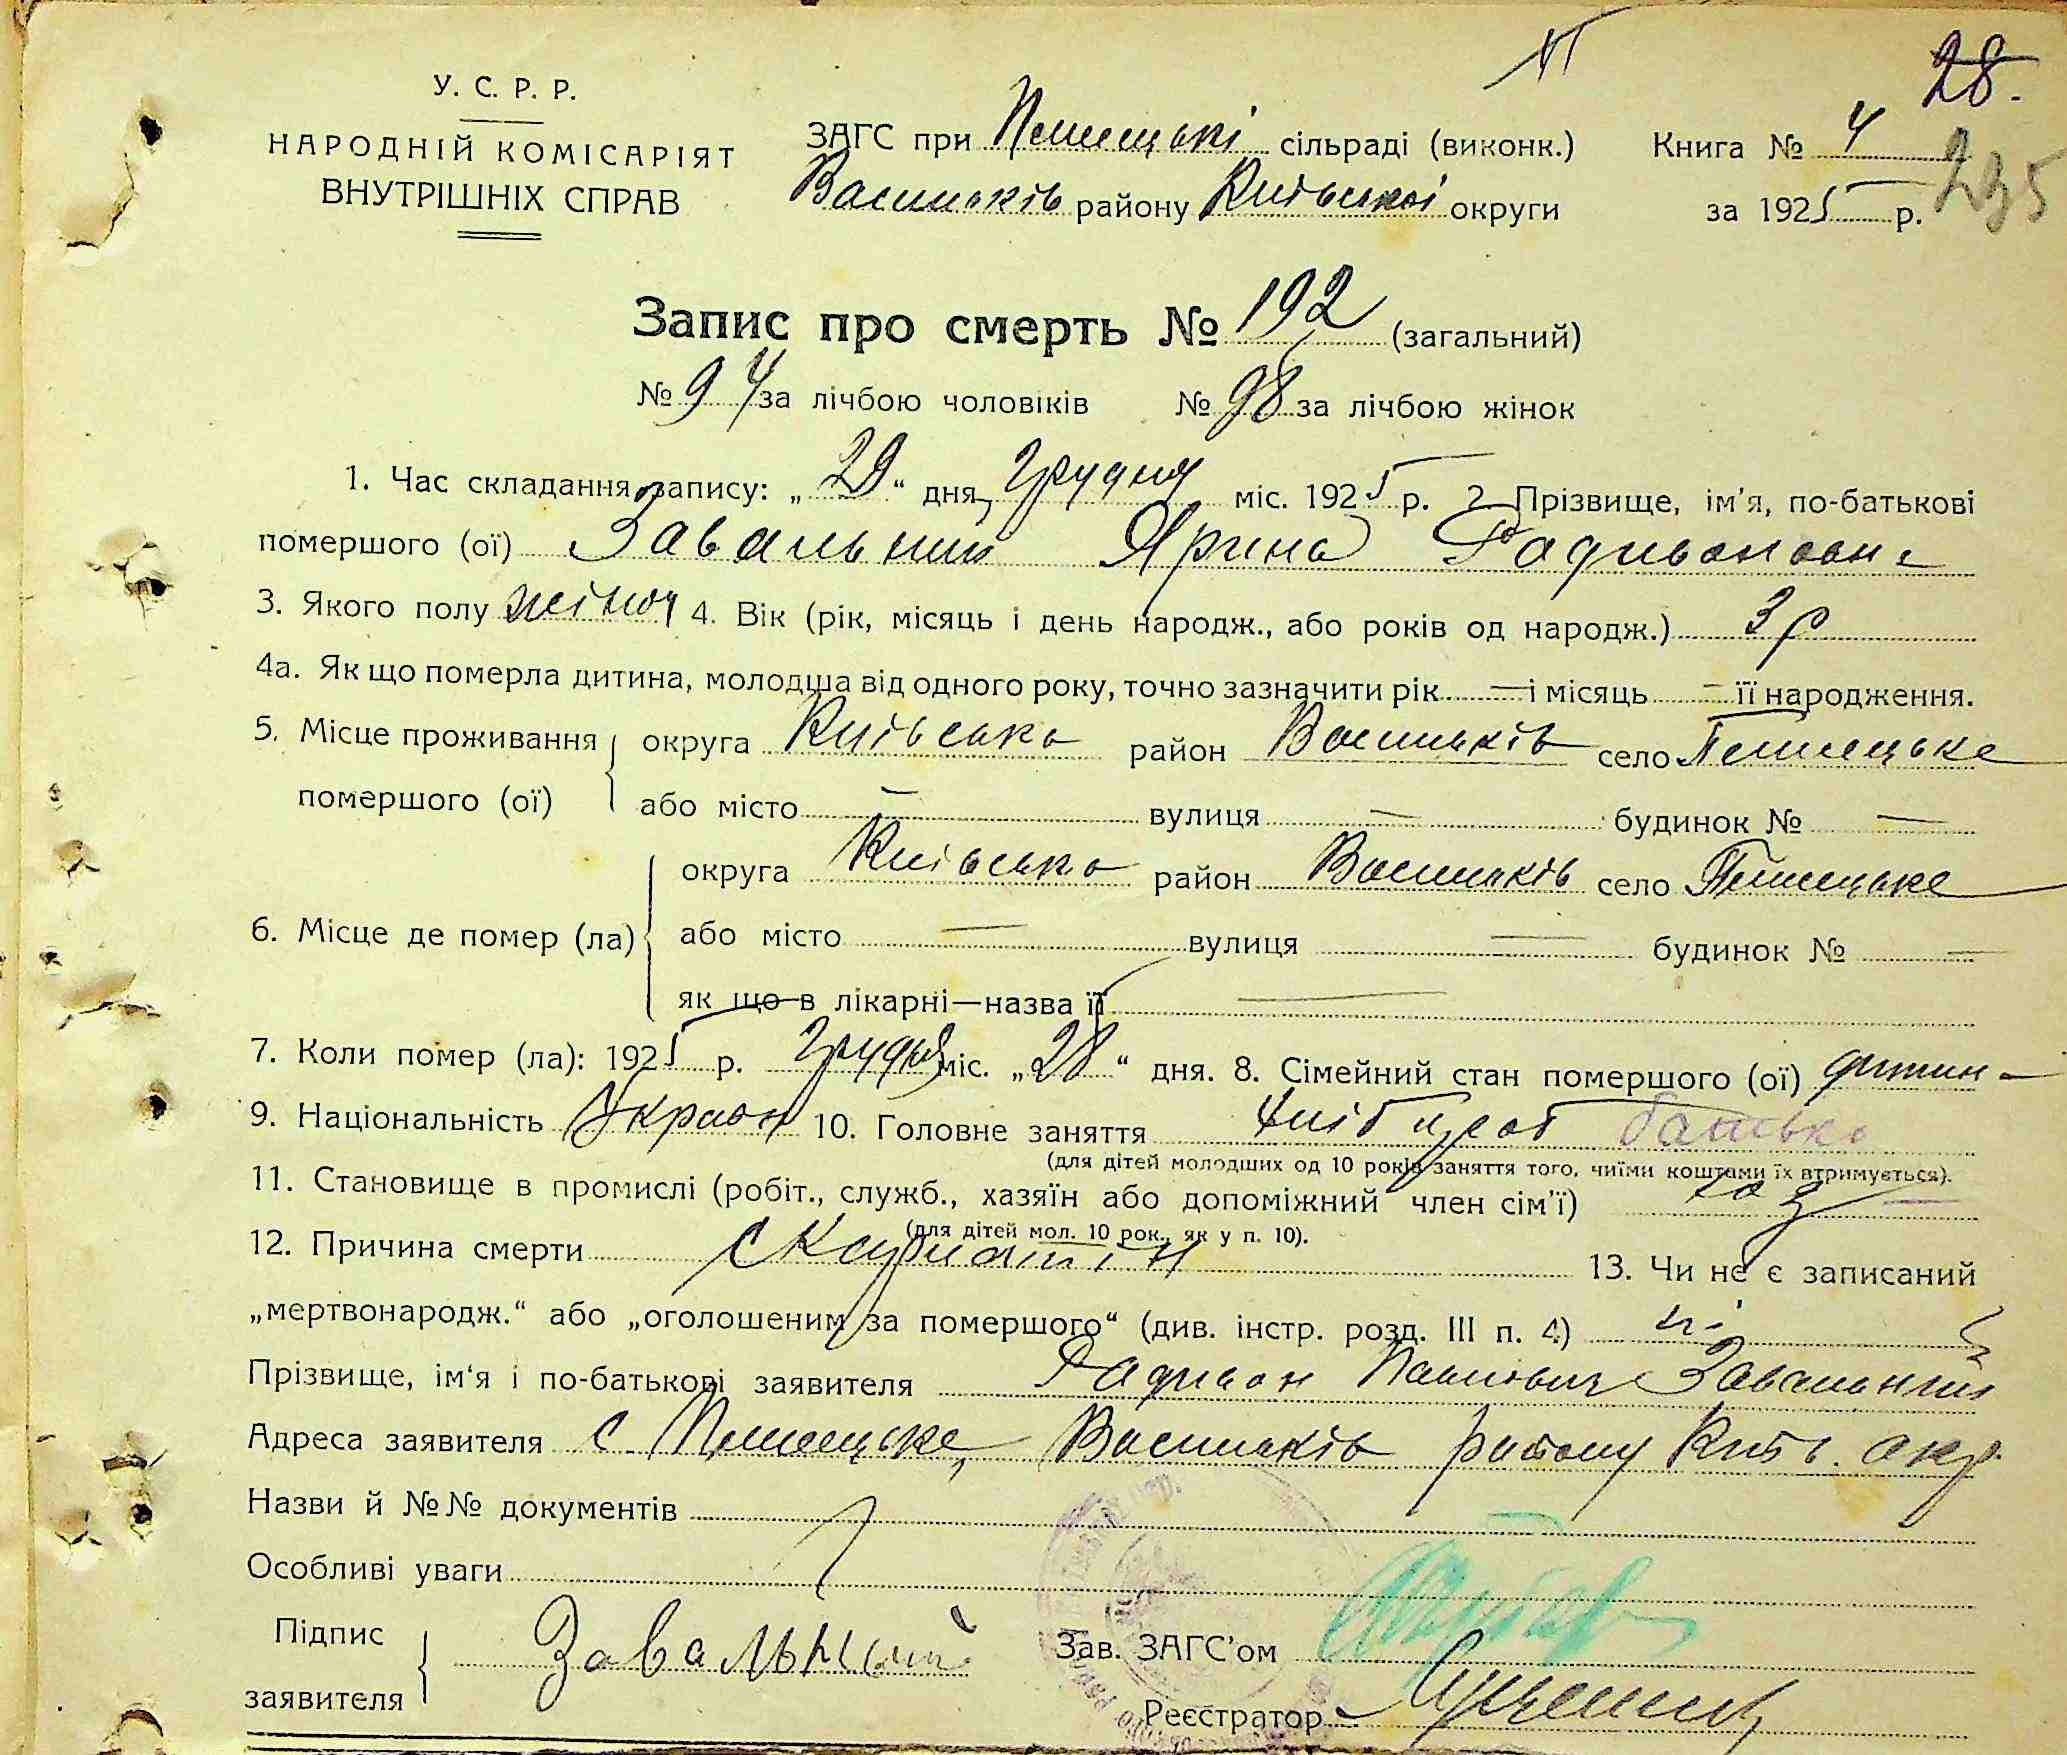 28.
У. С. Р. Р.
НАРОДНІЙ КОМІСАРІЯТ
ВНУТРІШНІХ СПРАВ
ЗАГС при сільраді (виконк.)
Васильків району Київської округи
Книга № 4
235
за 1925 р.
Запис про смерть № 192 (загальний)
№ 94 за лічбою чоловіків № 98 за лічбою жінок
1. Час складання запису: „29“ дня грудня міс. 1925 р. 2 Прізвище, ім'я, по-батькові
помершого (ої) Завальний Ярина Радионовна
3. Якого полу жіноч 4. Вік (рік, місяць і день народж., або років од народж.) 3 р
4а. Як що померла дитина, молодша від одного року, точно зазначити рік — і місяць — її народження.
5. Місце проживання округа Київська район Васильків село
помершого (ої) або місто — вулиця — будинок № —
округа Київська район Васильків село
6. Місце де помер (ла) або місто — вулиця — будинок № —
як що в лікарні—назва її —
7. Коли помер (ла): 1925 р. грудня міс. „28“ дня. 8. Сімейний стан помершого (ої) дитина
9. Національність Україн 10. Головне заняття хліб батько
(для дітей молодших од 10 років заняття того, чиїми коштами їх втримується).
11. Становище в промислі (робіт., служб., хазяїн або допоміжний член сім'ї) хаз
(для дітей мол. 10 рок., як у п. 10).
12. Причина смерти скарлатін 13. Чи не є записаний
„мертвонародж.“ або „оголошеним за помершого“ (див. інстр. розд. III п. 4) ні
Прізвище, ім'я і по-батькові заявителя Радион Павлович Завальний
Адреса заявителя с. Васильків району Київ. окр.
Назви й №№ документів
Особливі уваги
Підпис
заявителя Завальний
Зав. ЗАГС'ом
Реєстратор